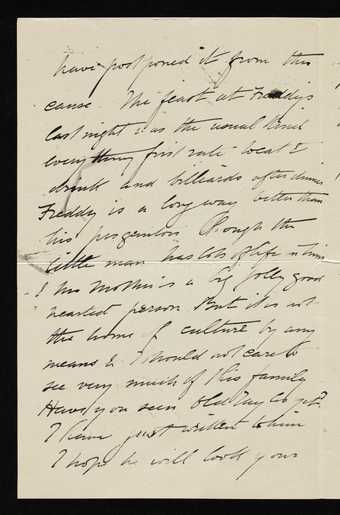 have postponed it from this
cause. The feast at Freddy's
last night was the usual kind
everything first rate to eat &
drink and billiards after dinner
Freddy is a long way better than
his progenitors though the
little man has lots of life in him
& his mother is a big jolly good
hearted person But it is not
the home of culture by any
means & I should not care to
see very much of this family
Have you seen yet?
I have just written to him
I hope he will look you